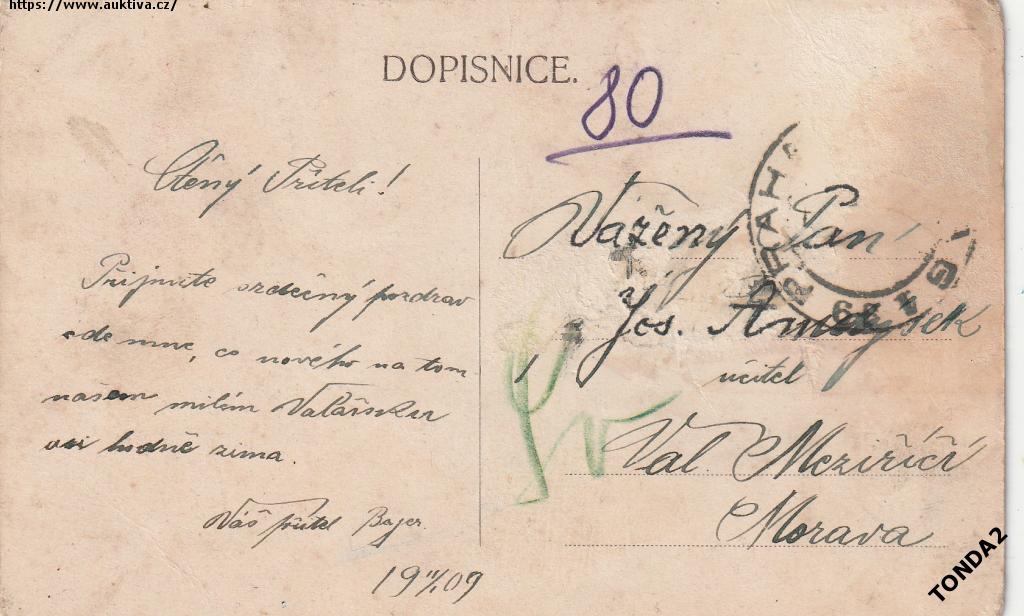 https://www.auktiva.cz/
DOPISNICE.
80
Ctěný Příteli!
Přijmete srdečný pozdrav
ode mne, co nového na tom
našem milém Valašsku
asi hodně zima.
Váš přítel Bajer
19 11/1 09
Vážený Pan
Jos.
učitel
Val. Meziříčí
Morava
PRAHA
29
TONDA2